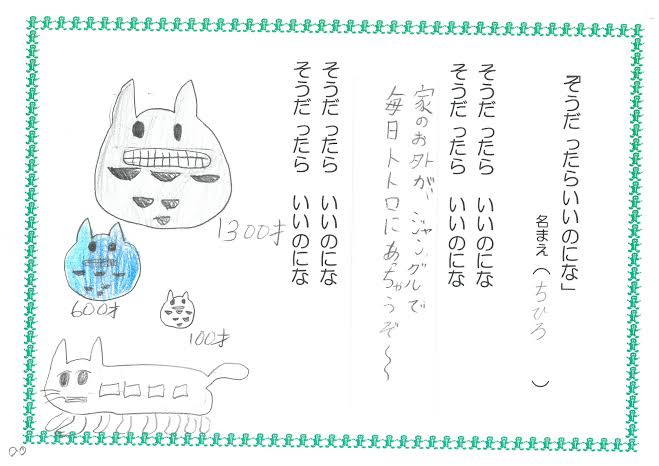 「そうだ ったらいいのにな」
名まえ（ちひろ　）
そうだ ったら　いいのにな
そうだ ったら　いいのにな
家のお外が、ジャングルで
毎日トトロにあっちゃうぞ〜〜
そうだ ったら　いいのにな
そうだ ったら　いいのにな
1300才
600才
100才